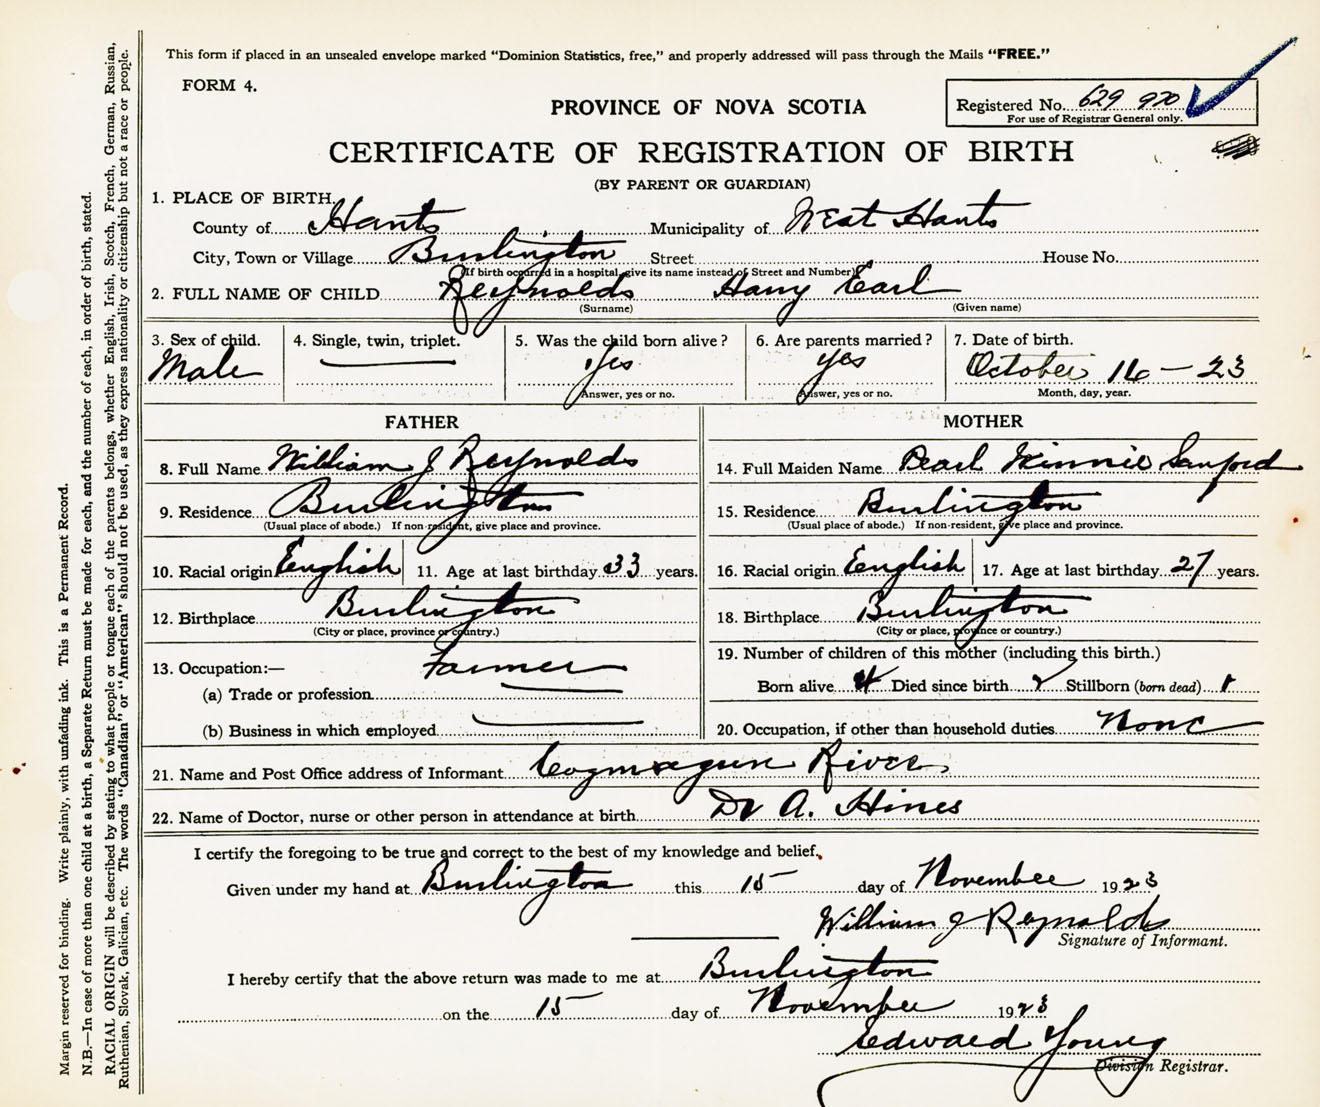 This form if placed in an unsealed envelope marked "Dominion Statistics, free," and properly addressed will pass through the Mails "FREE."
FORM 4.
PROVINCE OF NOVA SCOTIA
Registered No. 629 970
For use of Registrar General only.
CERTIFICATE OF REGISTRATION OF BIRTH
(BY PARENT OR GUARDIAN)
1. PLACE OF BIRTH.
County of Hants Municipality of West Hants
City, Town or Village Burlington Street House No.
(If birth occurred in a hospital, give its name instead of Street and Number)
2. FULL NAME OF CHILD Reynolds Harry Earl
(Surname) (Given name)
3. Sex of child. 4. Single, twin, triplet. 5. Was the child born alive? 6. Are parents married? 7. Date of birth.
Male Yes yes October 16 - 23
Answer, yes or no. Answer, yes or no. Month, day, year.
FATHER MOTHER
8. Full Name William J Reynolds 14. Full Maiden Name Pearl Minnie Sanford
9. Residence Burlington 15. Residence Burlington
(Usual place of abode.) If non-resident, give place and province. (Usual place of abode.) If non-resident, give place and province.
10. Racial origin English 11. Age at last birthday 33 years. 16. Racial origin English 17. Age at last birthday 27 years.
12. Birthplace Burlington 18. Birthplace Burlington
(City or place, province or country.) (City or place, province or country.)
13. Occupation:— Farmer 19. Number of children of this mother (including this birth.)
(a) Trade or profession Born alive 4 Died since birth Stillborn (born dead) 1
(b) Business in which employed 20. Occupation, if other than household duties None
21. Name and Post Office address of Informant Cogmagun River
22. Name of Doctor, nurse or other person in attendance at birth Dr A. Hines
I certify the foregoing to be true and correct to the best of my knowledge and belief.
Given under my hand at Burlington this 15 day of November 1923
William J Reynolds
Signature of Informant.
I hereby certify that the above return was made to me at Burlington
on the 15 day of November 1923
Edward Young
Division Registrar.
Margin reserved for binding. Write plainly, with unfading ink. This is a Permanent Record.
N.B.—In case of more than one child at a birth, a Separate Return must be made for each, and the number of each, in order of birth, stated.
RACIAL ORIGIN will be described by stating to what people or tongue each of the parents belongs, whether English, Irish, Scotch, French, German, Russian,
Ruthenian, Slovak, Galician, etc. The words "Canadian" or "American" should not be used, as they express nationality or citizenship but not a race or people.